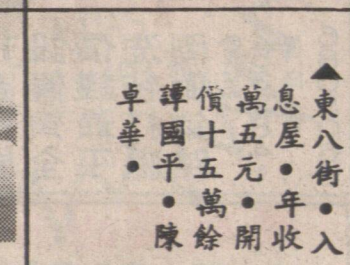 ▲東八街●入
息屋●年收
萬五元●開
價十五萬餘
譚國平●陳
卓華●